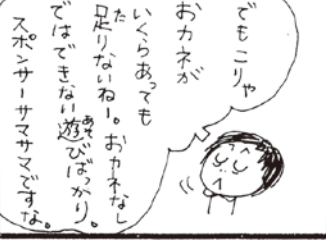 でもこりゃ
おカネが
いくらあっても
足りないねー。おカネなし
ではできない遊びばっかり。
スポンサーサマサマですな。